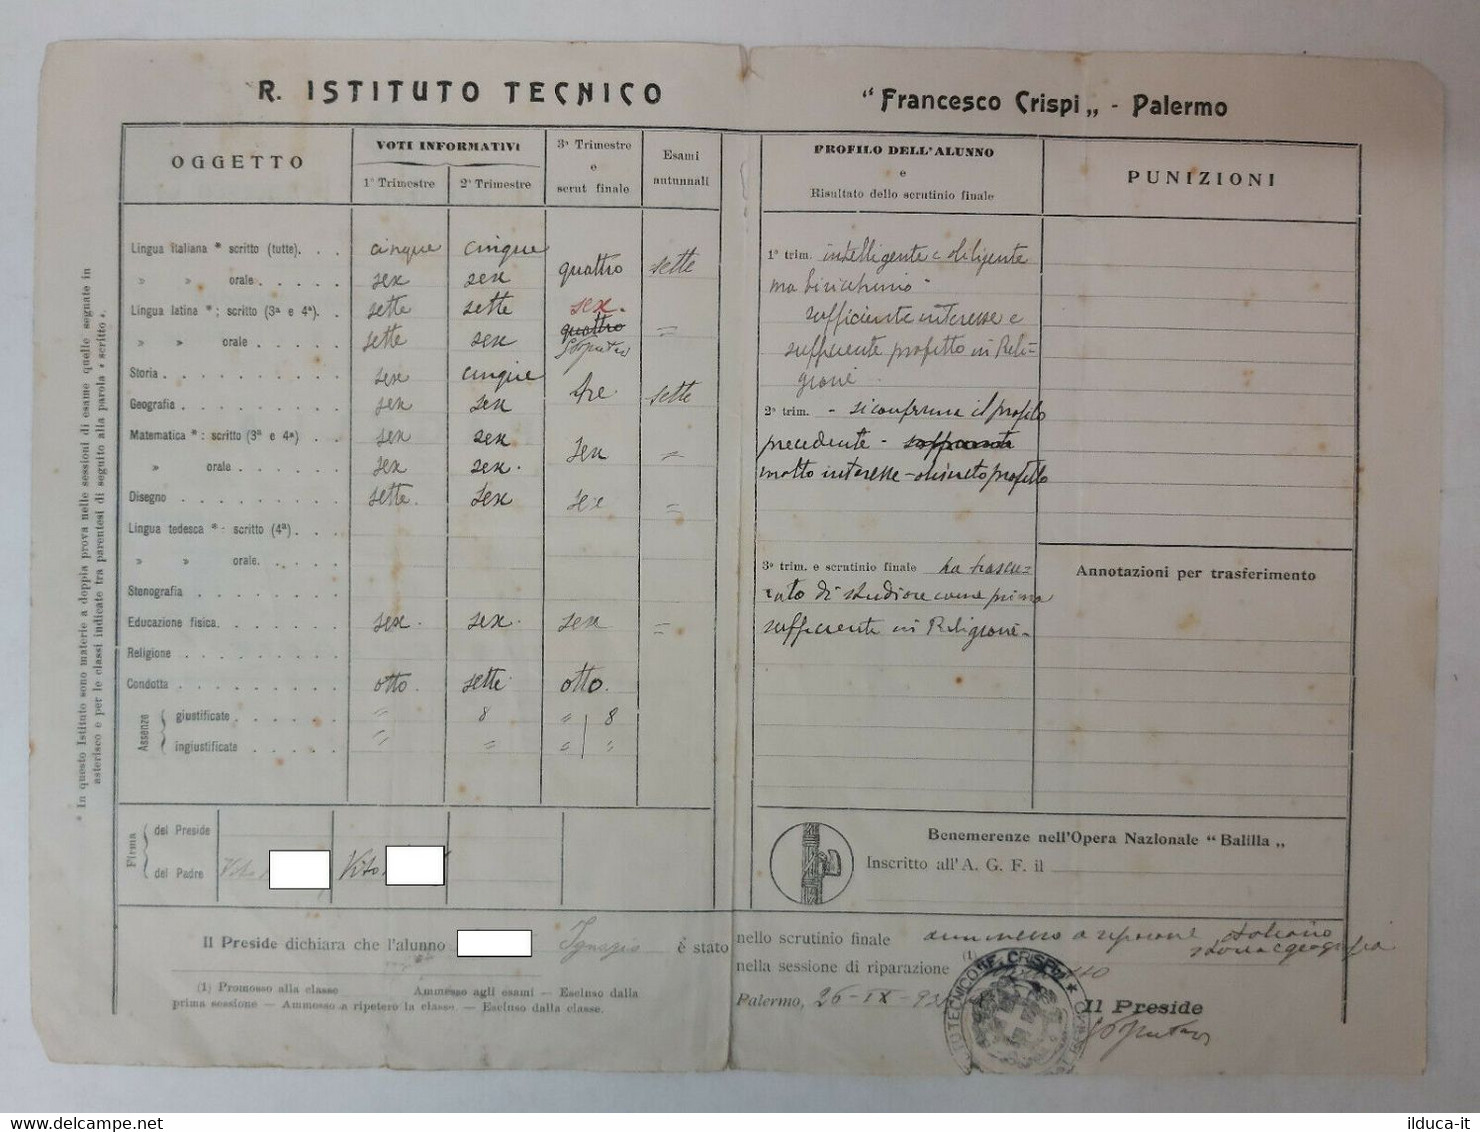 R. ISTITUTO TECNICO
" Francesco Crispi „ - Palermo
OGGETTO
VOTI INFORMATIVI
1º Trimestre
2º Trimestre
3º Trimestre
e
scrut finale
Esami
autunnali
PROFILO DELL'ALUNNO
e
Risultato dello scrutinio finale
PUNIZIONI
Lingua italiana * scritto (tutte). . . cinque cinque
» » orale . . . . . sex sex quattro sette
Lingua latina * : scritto (3ª e 4ª). . sette sette sex.
» » orale . . . . . sette sex quattro =
Storia . . . . . . . . . . sex cinque
Geografia . . . . . . . . . sex sex tre sette
Matematica * : scritto (3ª e 4ª) . . sex sex
» orale . . . . . . sex sex. sex =
Disegno . . . . . . . . . sette. sex sex =
Lingua tedesca * : scritto (4ª) . . .
» » orale. . . . .
Stenografia . . . . . . . .
Educazione fisica. . . . . . . sex. sex. sex =
Religione . . . . . . . . .
Condotta . . . . . . . . . otto. sette otto.
Assenze
giustificate . . . . . . " 8 " 8
ingiustificate . . . . . " " " "
* In questo Istituto sono materie a doppia prova nelle sessioni di esame quelle segnate in
asterisco e per le classi indicate tra parentesi di seguito alla parola « scritto ».
Firma
del Preside
del Padre Vito Vito
1º trim. intelligente e diligente
ma birichino -
sufficiente interesse e
sufficiente profitto in Reli-
gione
2º trim. - si conferma il profilo
precedente -
molto interesse - discreto profitto
3º trim. e scrutinio finale ha trascu-
rato di studiare come prima
sufficiente in Religione -
Annotazioni per trasferimento
Benemerenze nell'Opera Nazionale " Balilla „
Inscritto all'A. G. F. il
Il Preside dichiara che l'alunno Ignazio è stato
nello scrutinio finale ammesso a riparare italiano
storia e geografia
nella sessione di riparazione (1)
(1) Promosso alla classe Ammesso agli esami — Escluso dalla
prima sessione — Ammesso a ripetere la classe. — Escluso dalla classe.
Palermo, 26-IX-93
Il Preside
ilduca-it